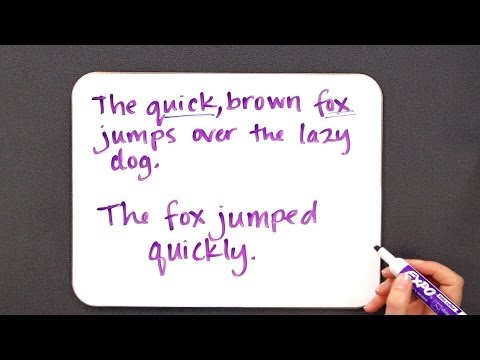 The quick, brown fox
jumps over the lazy
dog.
The fox jumped
quickly.
EXPO